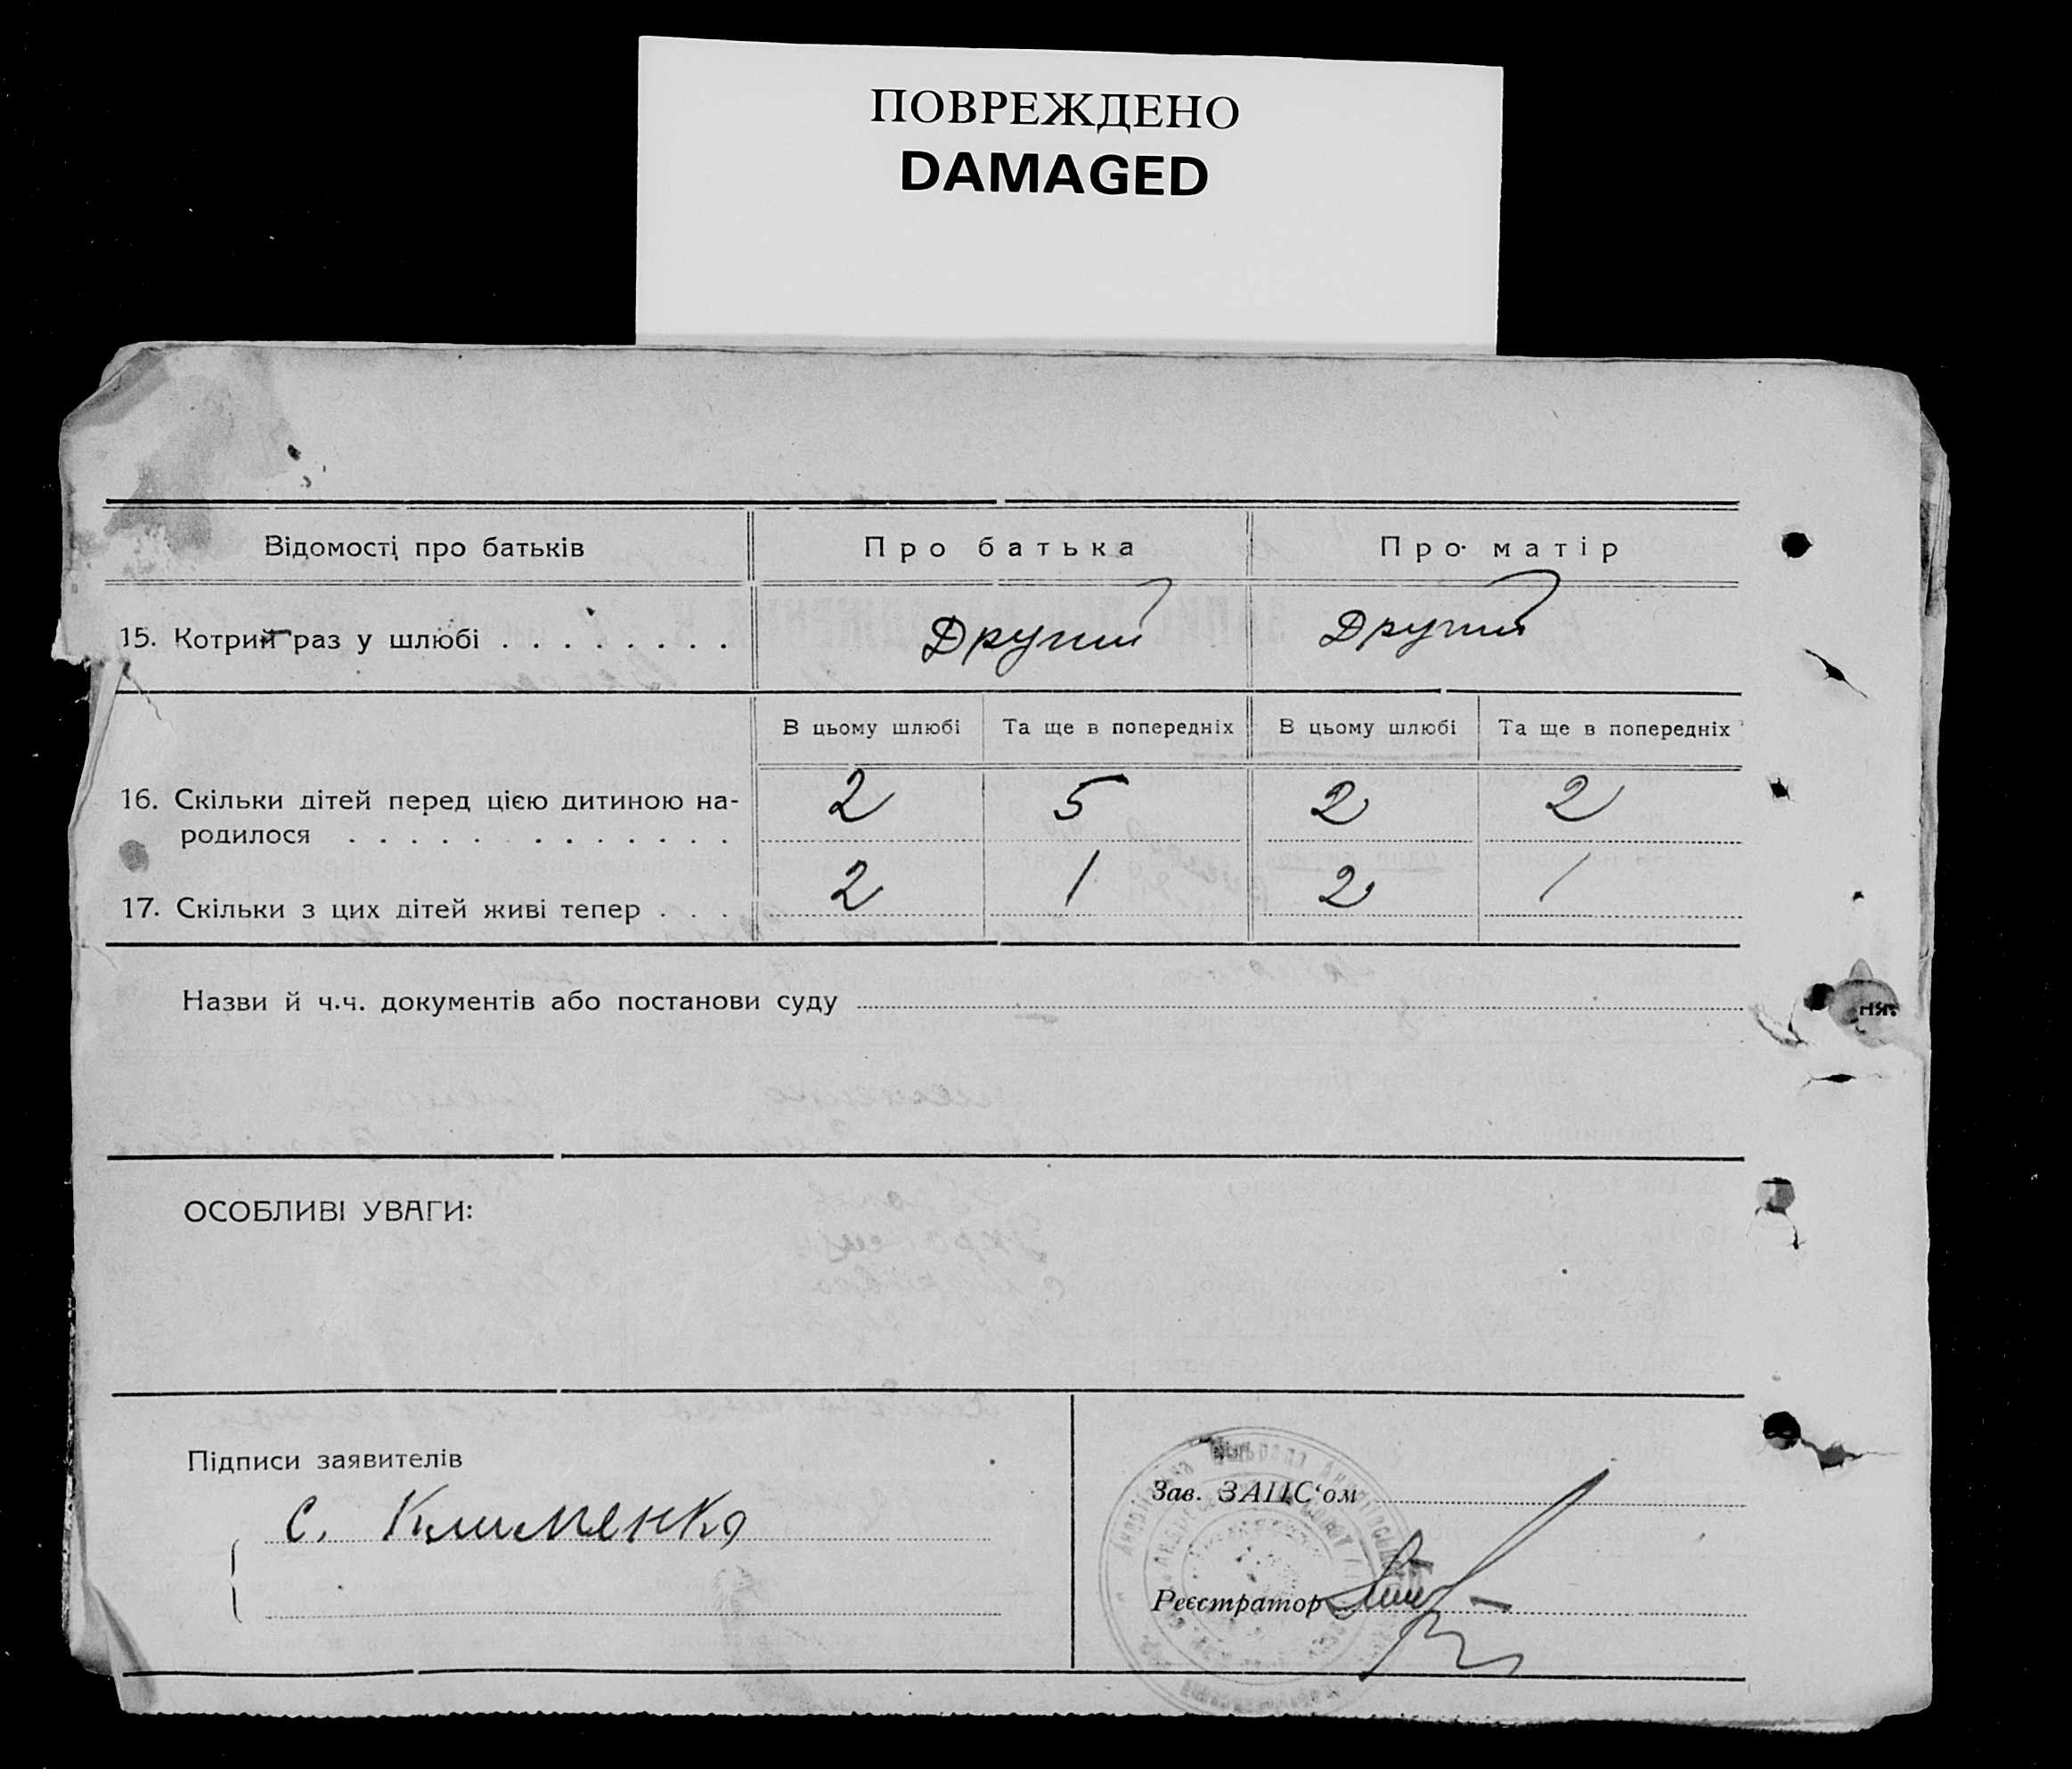 ПОВРЕЖДЕНО
DAMAGED
Відомості про батьків
Про батька
Про матір
15. Котрий раз у шлюбі . . . . . . . .
Другий
Другий
В цьому шлюбі
Та ще в попередніх
В цьому шлюбі
Та ще в попередніх
16. Скільки дітей перед цією дитиною на-
родилося . . . . . . . . . . . . .
2
5
2
2
17. Скільки з цих дітей живі тепер . . .
2
1
2
1
Назви й ч.ч. документів або постанови суду
ня.
ОСОБЛИВІ УВАГИ:
Підписи заявителів
С. Клименко
Зав. ЗАЦС‘ом
Реєстратор